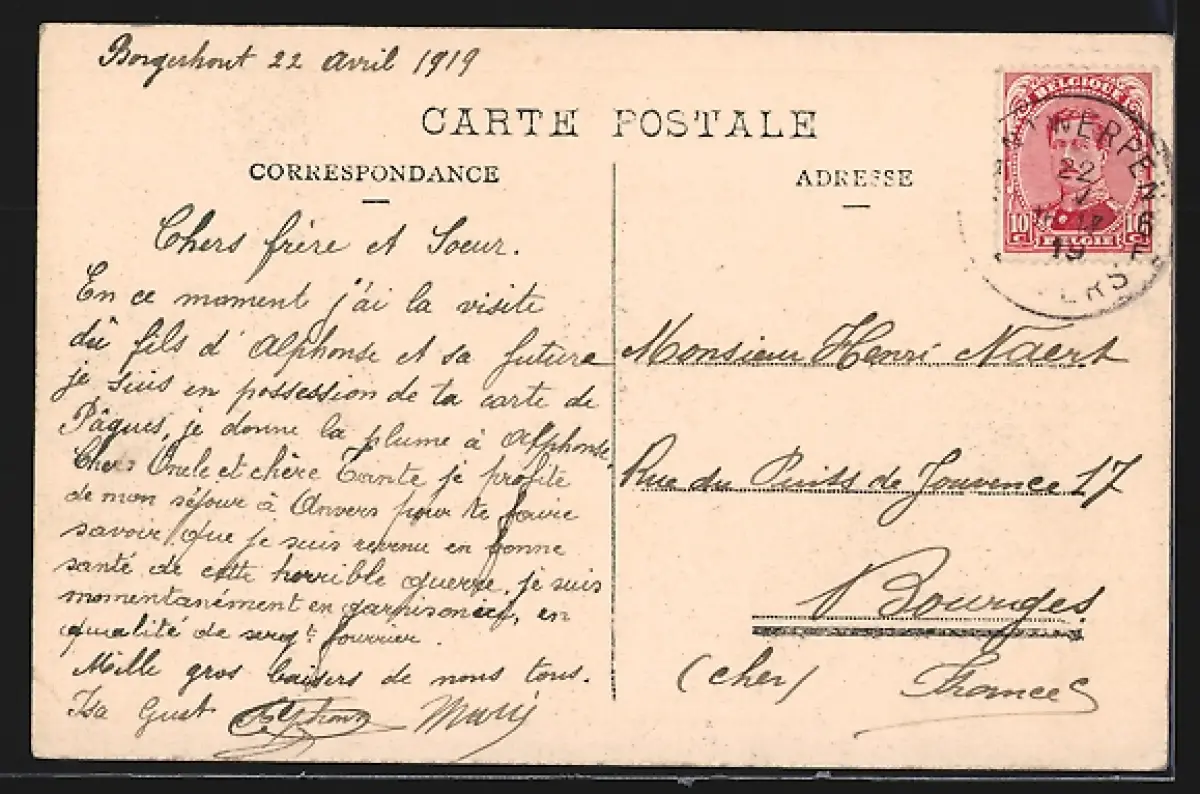 Borgerhout 22 Avril 1919
CARTE POSTALE
CORRESPONDANCE
Chers frère et Soeur.
En ce moment j'ai la visite
du fils d'Alphonse et sa future
je suis en possession de ta carte de
Pâques, je donne la plume à Alphonse.
Chers Oncle et chère Tante je profite
de mon séjour à Anvers pour te faire
savoir que je suis revenu en bonne
santé de cette horrible guerre, je suis
momentanément en garnison ici, en
qualité de sergt fourrier.
Mille gros baisers de nous tous.
Isa Gust Alphons Marij
ADRESSE
Monsieur Henri Naert
Rue du Puits de Jouvence 17
Bourges
(Cher) France
BELGIQUE
10 10
BELGIE
ANTWERPEN
22
19
6F
ERS